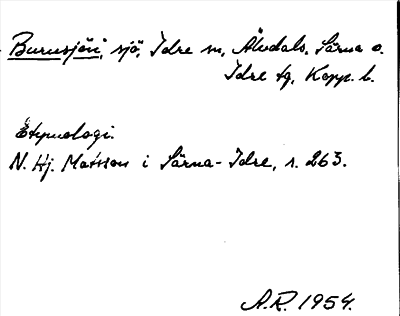 Burusjön, sjö, Idre sn, Älvdals, Särna o.
Idre tg, Kopp. l.
Etymologi.
N. Hj. Matsson i Särna-Idre, s. 263.
A.R. 1954.